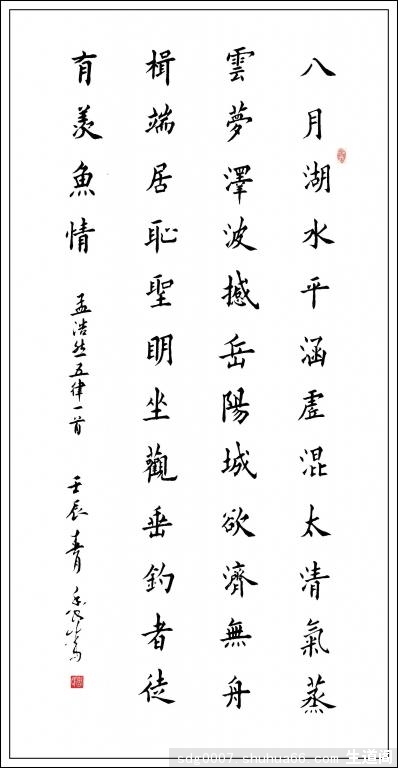 八月湖水平涵虚混太清氣蒸
雲夢澤波撼岳陽城欲濟無舟
楫端居恥聖明坐觀垂釣者徒
有羨魚情
孟浩然五律一首
壬辰青
cdg0007.shuhua66.com 生道閣